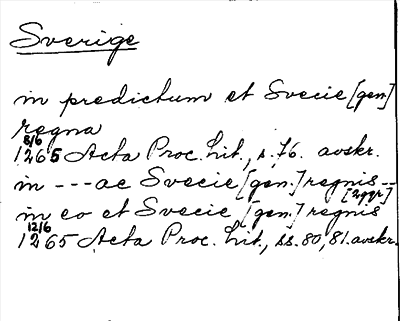 Sverige
in predictum et Svecie [gen.]
regna
8/6
1265 Acta Proc. lit., s. 76. avskr.
in --- ac Svecie [gen.] regnis --
[2 ggr]
in eo et Svecie [gen.] regnis
12/6
1265 Acta Proc. lit., ss. 80, 81. avskr.